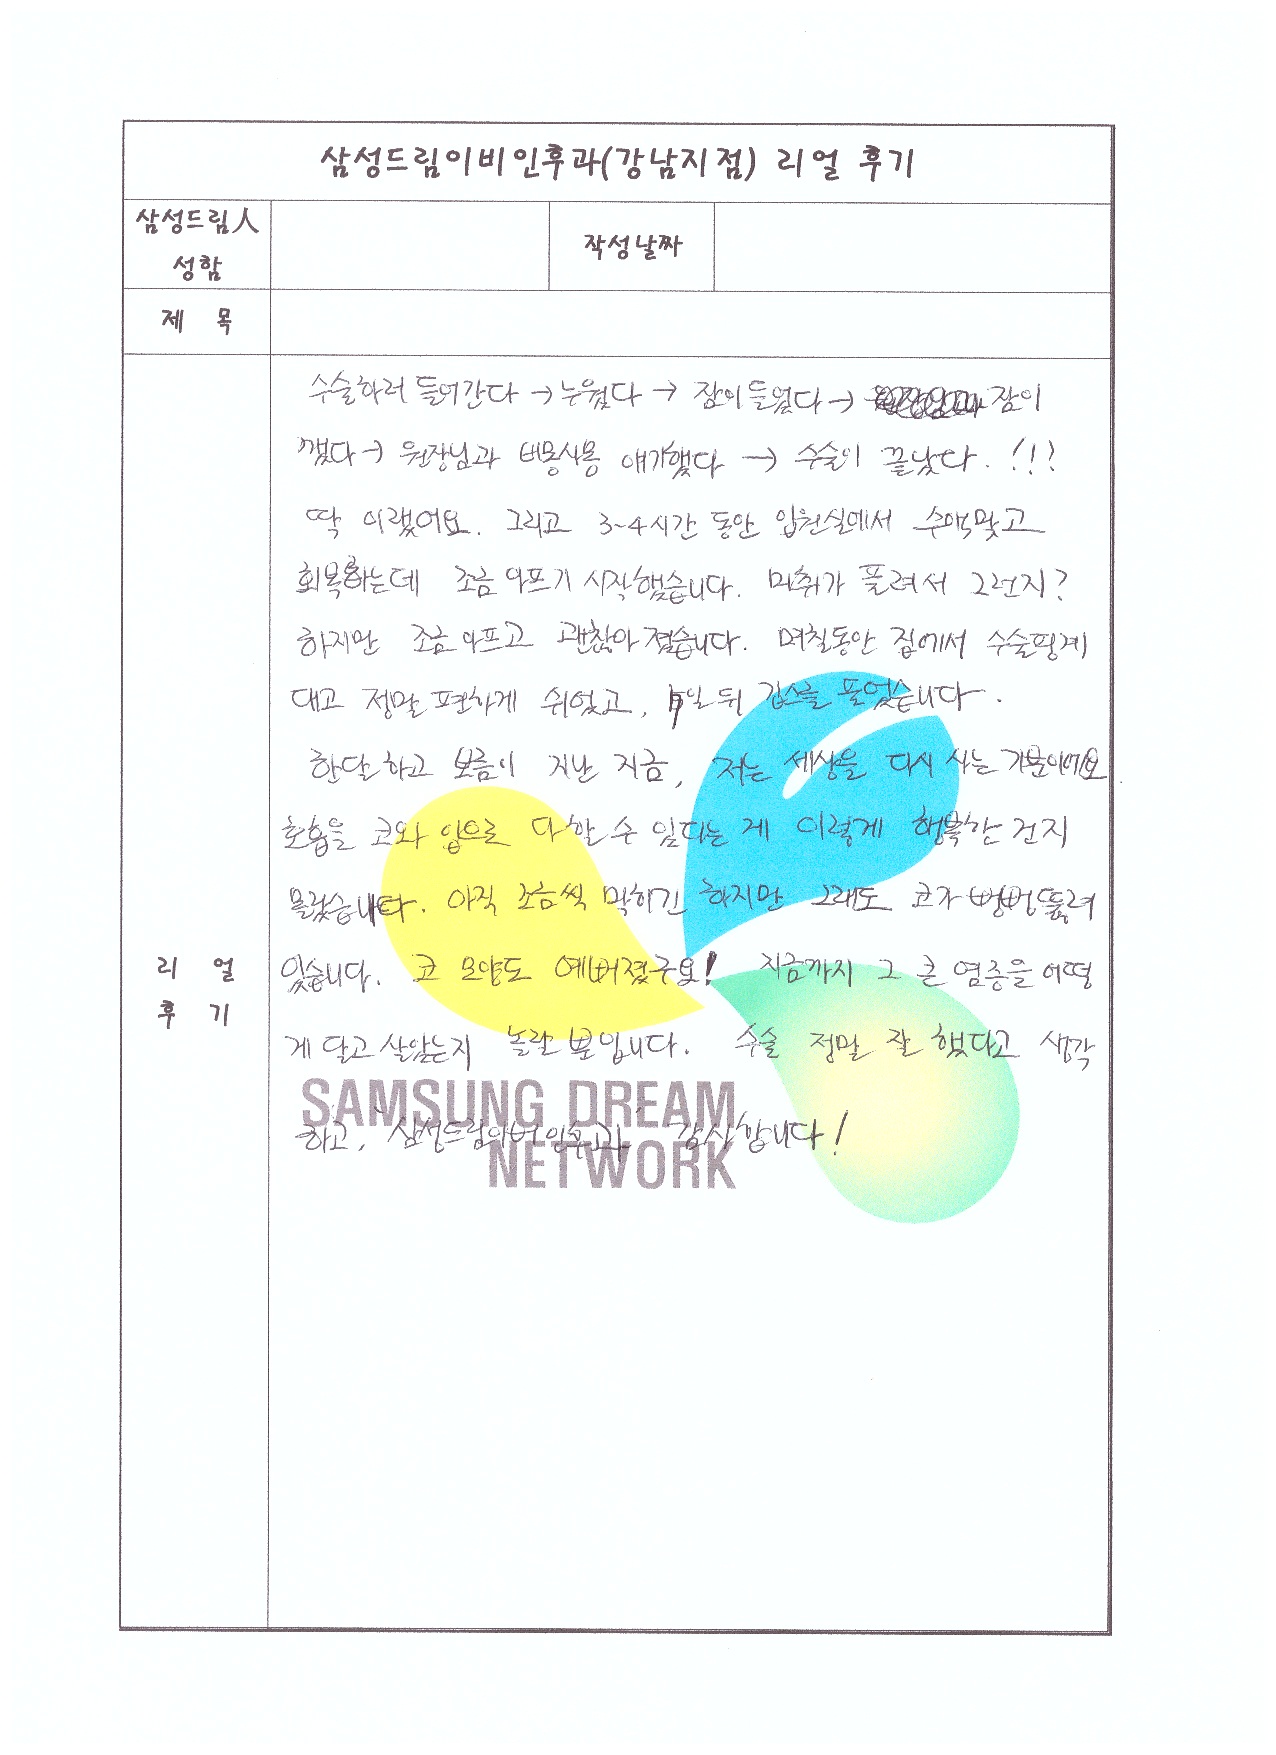 삼성드림이비인후과(강남지점) 리얼 후기
삼성드림人
성함
작성날짜
제 목
리 얼
후 기
수술하러 들어간다 → 누웠다 → 잠이 들었다 → 잠이
깼다 → 원장님과 비몽사몽 얘기했다 → 수술이 끝났다. !!!
딱 이랬어요. 그리고 3~4시간 동안 입원실에서 수액맞고
회복하는데 조금 아프기 시작했습니다. 마취가 풀려서 그런지?
하지만 조금 아프고 괜찮아 졌습니다. 며칠동안 집에서 수술핑계
대고 정말 편하게 쉬었고, 뒤 깁스를 풀었습니다.
한달 하고 보름이 지난 지금, 저는 세상을 다시 사는 기분이에요
호흡을 코와 입으로 다 할 수 있다는 게 이렇게 행복한 건지
몰랐습니다. 아직 조금씩 막히긴 하지만 그래도 코가 뻥뻥 뚫려
있습니다. 코 모양도 예뻐졌구요! 지금까지 그 큰 염증을 어떻
게 달고 살았는지 놀랄 뿐입니다. 수술 정말 잘 했다고 생각
하고, 삼성드림이비인후과 감사합니다!
SAMSUNG DREAM
NETWORK